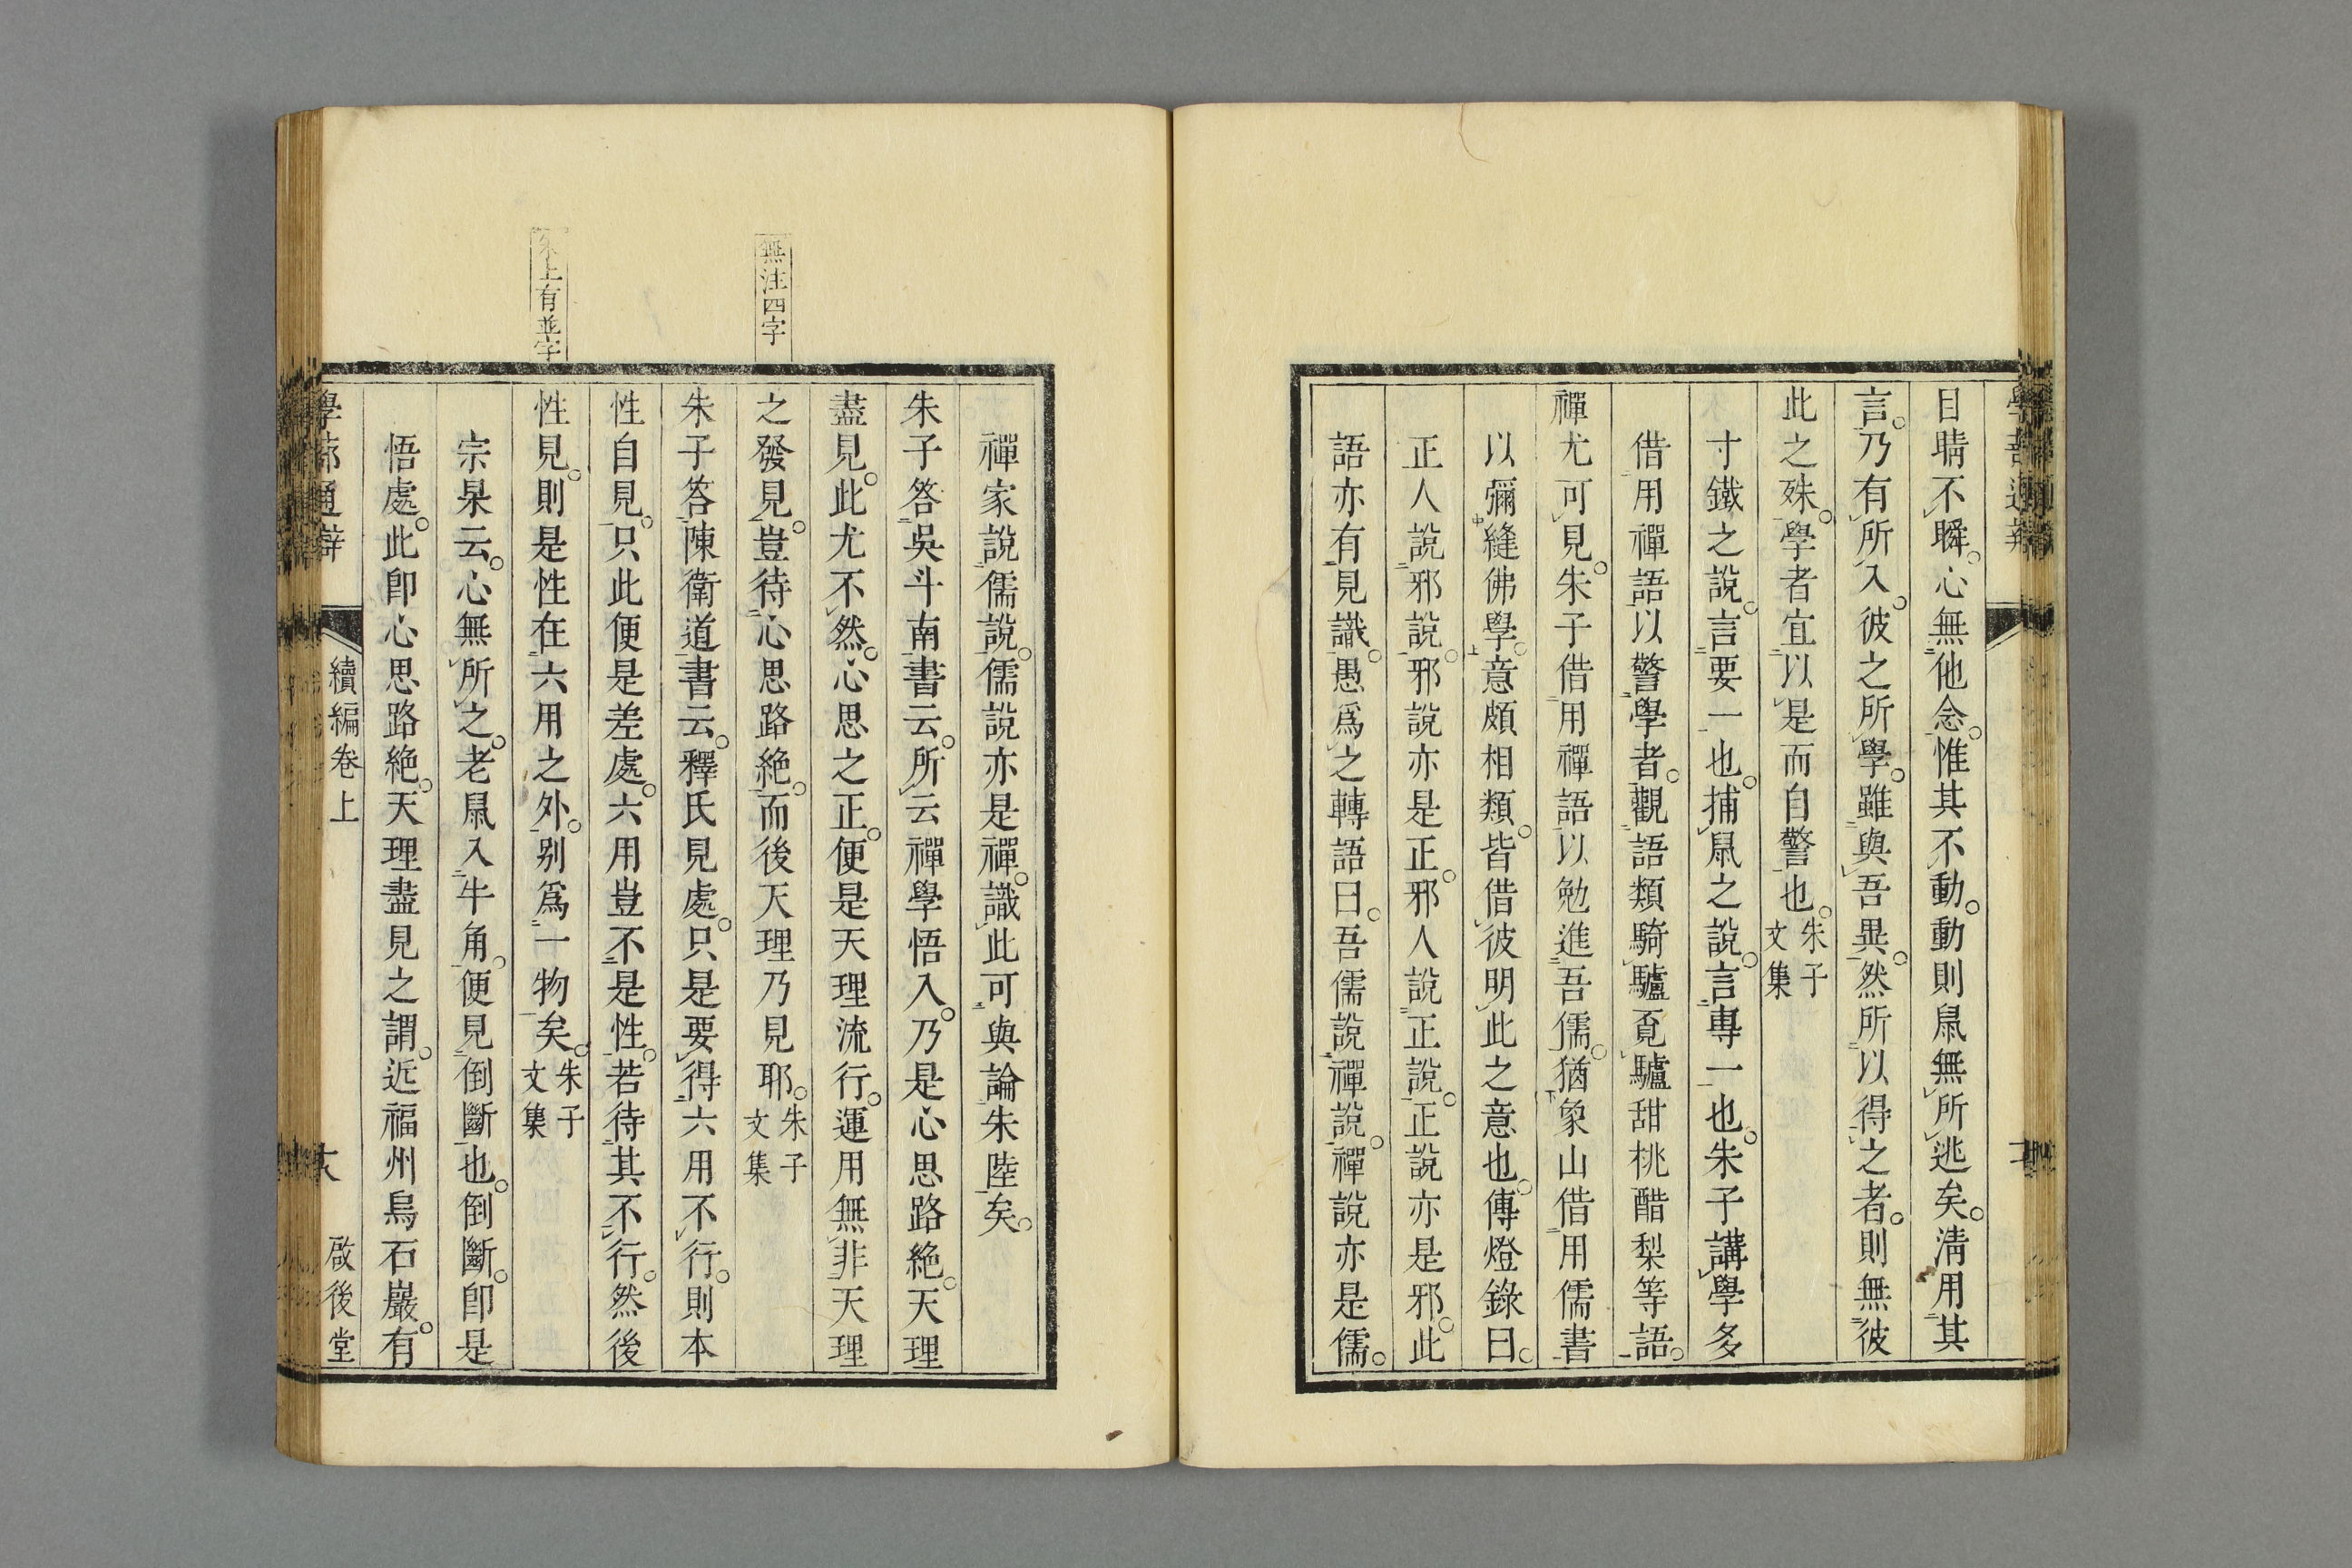 目睛不瞬。心無他念。惟其不動。動則鼠無所逃矣。淸用其
言。乃有所入。彼之所學。雖與吾異。然所以得之者。則無彼
此之殊。學者宜以是而自警也。朱子文集
寸鐵之說。言要一也。捕鼠之說。言專一也。朱子講學多
借用禪語以警學者。觀語類騎驢覓驢甜桃醋梨等語。
禪尤可見。朱子借用禪語以勉進吾儒。猶象山借用儒書
以彌縫佛學。意頗相類。皆借彼明此之意也。傳燈錄曰。
正人說邪說。邪說亦是正。邪人說正說。正說亦是邪。此
語亦有見識。愚爲之轉語曰。吾儒說禪說。禪說亦是儒。
禪家說儒說。儒說亦是禪。識此可與論朱陸矣。
無注四字
朱子答吳斗南書云。所云禪學悟入。乃是心思路絶。天理
盡見。此尤不然。心思之正。便是天理流行。運用無非天理
之發見。豈待心思路絶。而後天理乃見耶。朱子文集
朱子答陳衛道書云。釋氏見處。只是要得六用不行。則本
性自見。只此便是差處。六用豈不是性。若待其不行。然後
性見。則是性在六用之外。别爲一物矣。朱子文集
上有並字
宗杲云。心無所之。老鼠入牛角。便見倒斷也。倒斷。卽是
悟處。此卽心思路絶。天理盡見之謂。近福州烏石巖。有
學蔀通辯
續編卷上
啟後堂